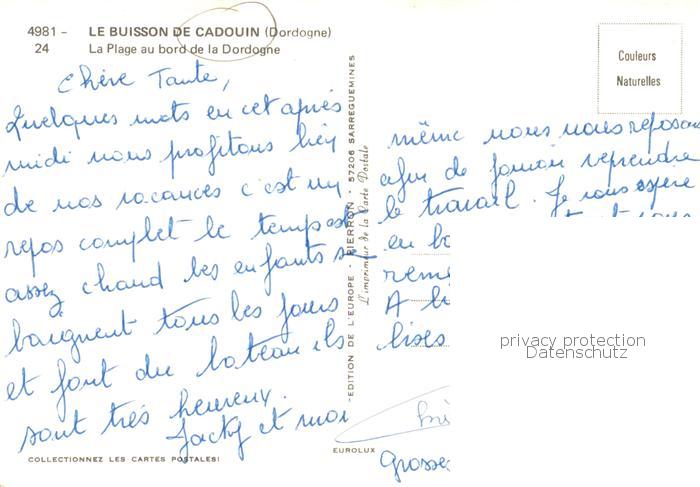 4981 - LE BUISSON DE CADOUIN (Dordogne)
24 La Plage au bord de la Dordogne
Chère Tante,
Quelques mots en cet après
midi nous profitons bien
de nos vacances c'est un
repos complet le temps est
assez chaud les enfants se
baignent tous les jours
et font du bateau ils
sont très heureux.
Jacky et moi
COLLECTIONNEZ LES CARTES POSTALES!
EDITION DE L'EUROPE - PIERRON - 57206 SARREGUEMINES
L'imprimeur de la Carte Postale
EUROLUX
Couleurs
Naturelles
même nous nous reposons
afin de pouvoir reprendre
le travail. Je vous espère
en bo
reme
A bi
bises
Grosse
privacy protection
Datenschutz